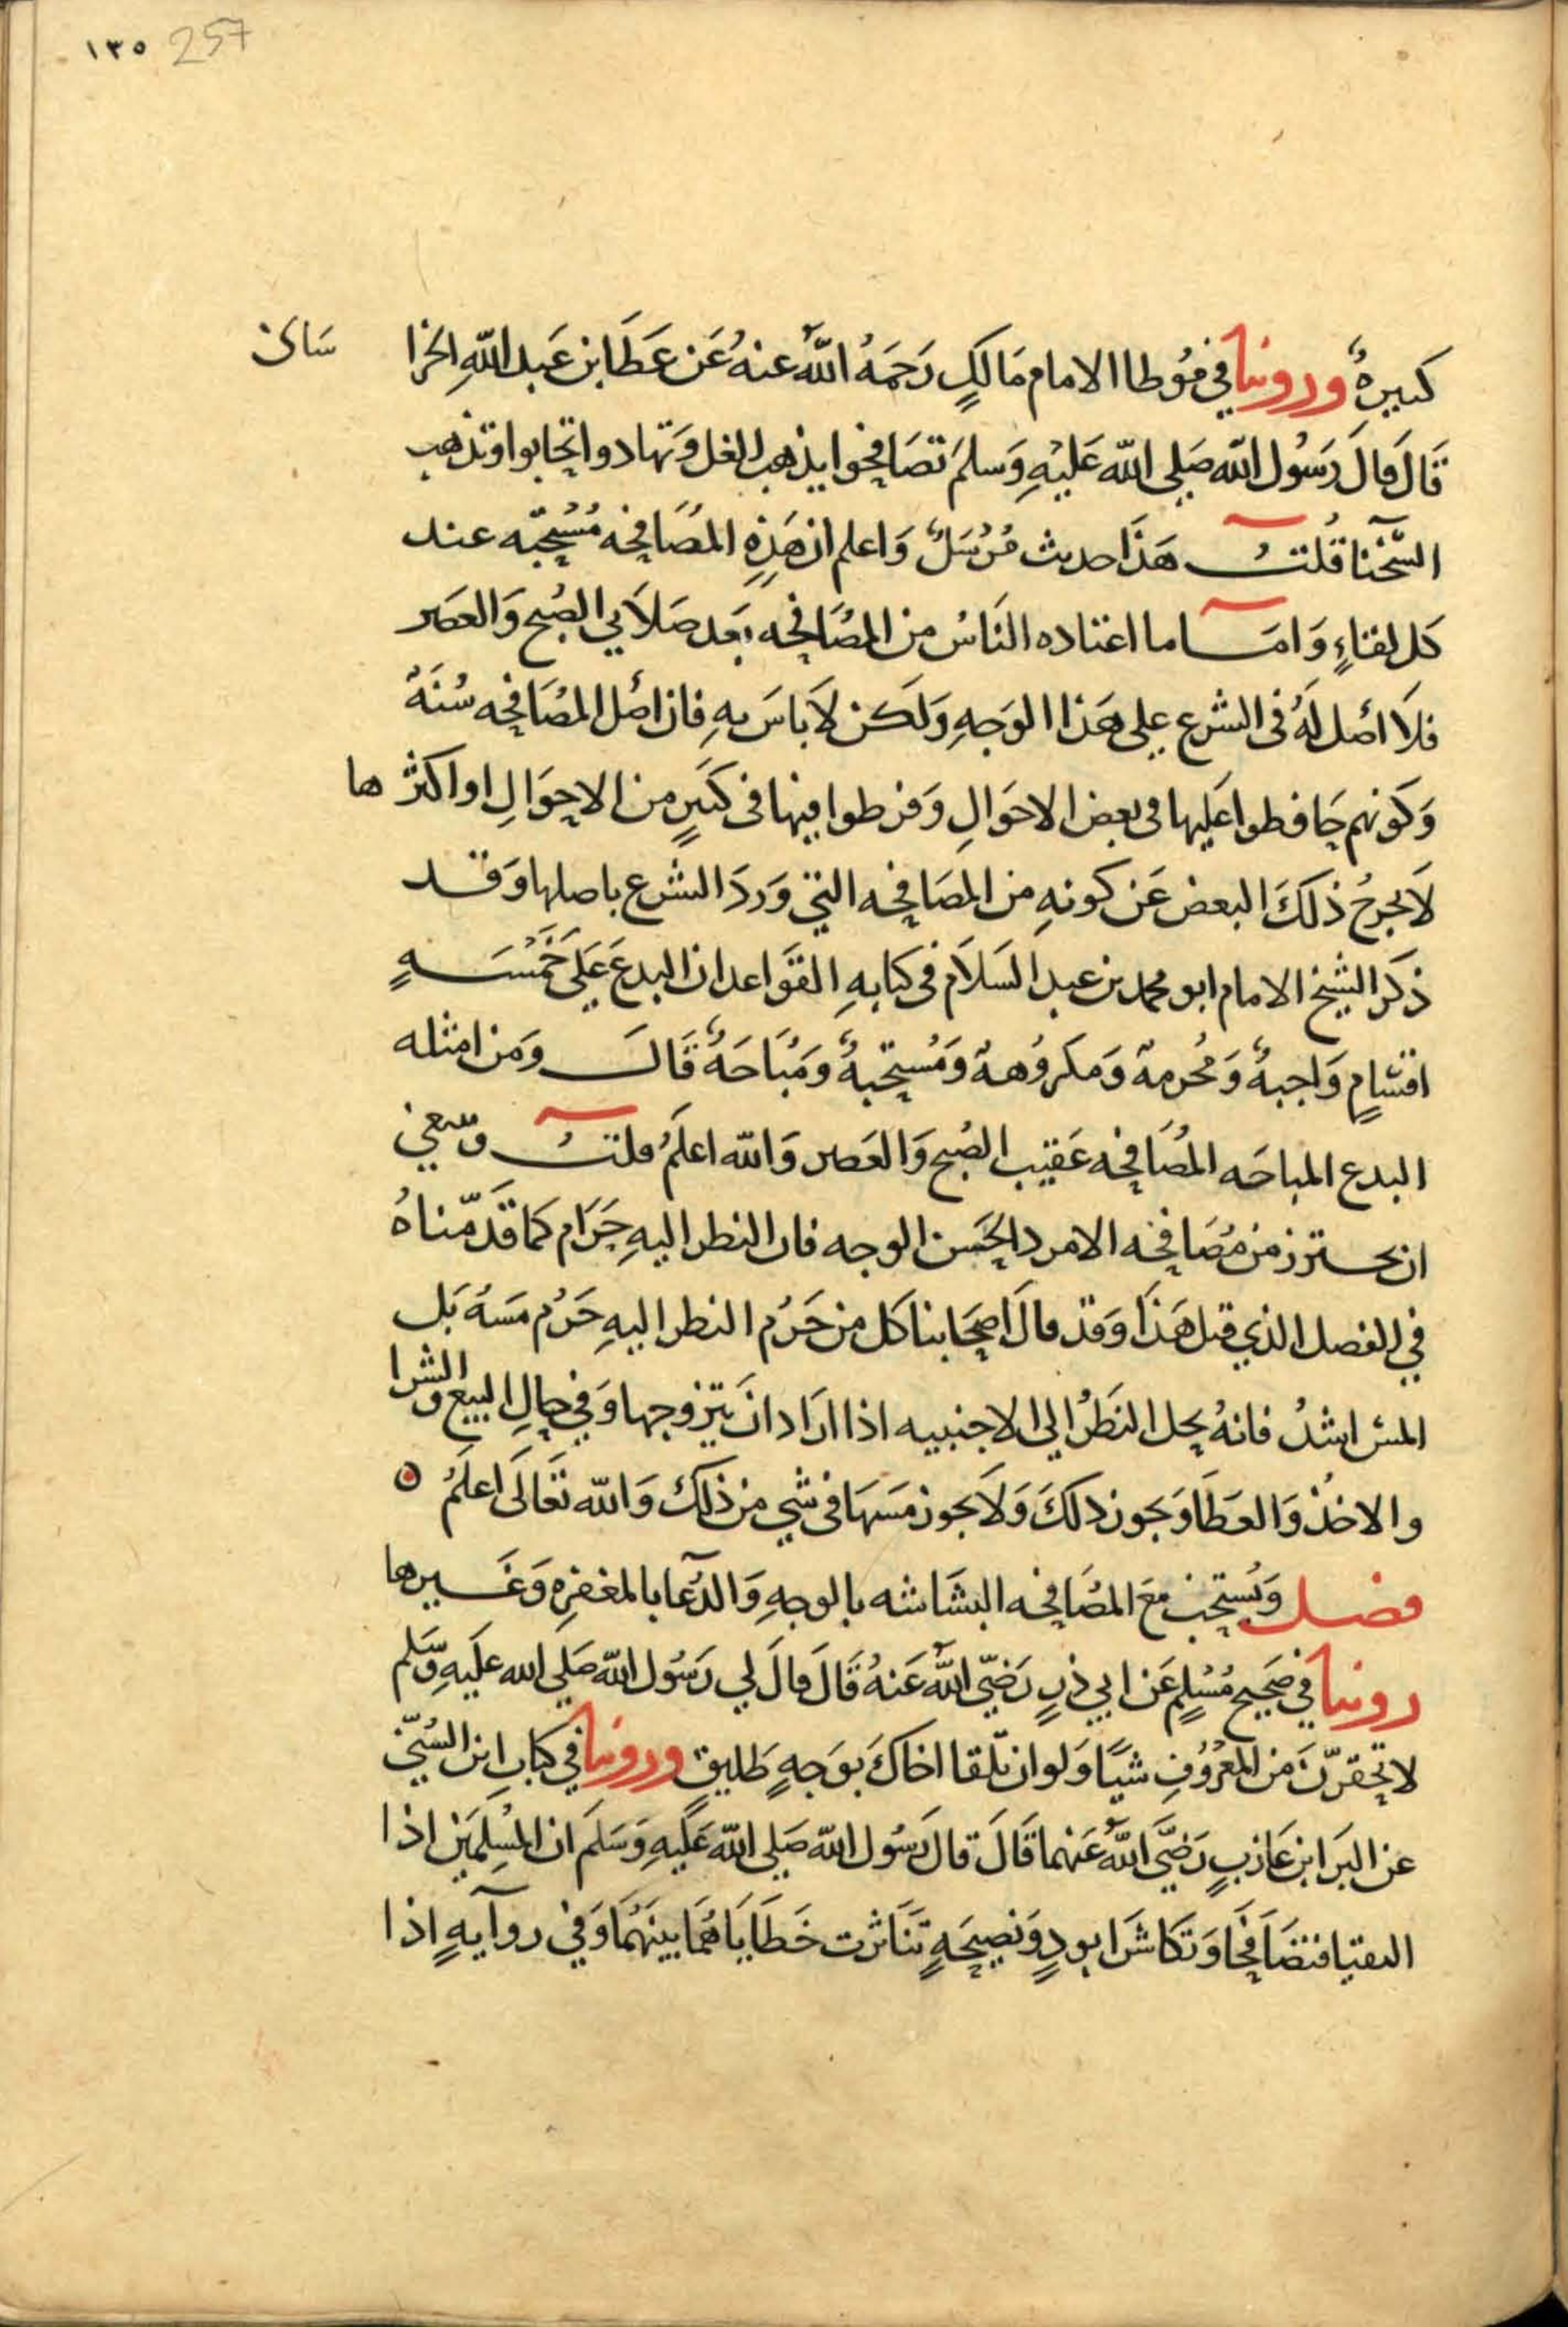 ١٣٥ 257
كبيرةٌ وروينا في مُوطا الامام مَالكٍ رَحمَهُ اللهُ عنهُ عَن عَطَا بن عَبد اللهِ الخرا ساىٰ
قَالَ قالَ رَسُول الله صَلى الله عَليْهِ وَسلمَ تصَافحوا يذهب الغل وَتهادوا تحابوا وتذهب
الشَّحْنا قُلتُ هَذَا حديث مُرْسَلٌ وَاعلم ان هَذِهِ المُصَافحه مُسْتحبّه عند
كل لقاءٍ وَامَّا ما اعتاده النَاسُ من المُصَافحه بعَد صَلاَتي الصُبح وَالعصَر
فلاَ اصْل لَهُ فى الشرع على هَذا الوَجهِ وَلَكن لاَ باسَ بهِ فان اصْل المُصَافحه سُنَةٌ
وَكَونهم حَافظوا عَليها فى بعض الاحوَالِ وَفرطوا فيها فى كثيرٍ من الاحوَالِ او اكثرها
لاَ يخرجُ ذلكَ البعض عَن كونهِ من المصَافحه التي وَردَ الشرع باصلها وَقد
ذكَر الشيخ الامام ابو محمد بن عبد السَلاَم فى كتابهِ القوَاعد ان البدعَ عَلى خَمْسَهٍ
اقسَامٍ وَاجبهٌ وَمُحرمهٌ وَمكروُههٌ وَمُستحبهٌ وَمُبَاحَهٌ قَالَ وَمن امثله
البدع المباحَه المُصَافحه عَقيب الصُبح وَالعَصر وَالله اعلَمُ قلتُ وينبغي
ان يحترز من مُصَافحه الامرد الحَسن الوجه فان النظر اليهِ حَرَام كمَا قَدّمناهُ
في الفصل الذي قبل هَذَا وَقد قالَ اصحَابنا كل من حَرُم النظر اليهِ حَرُم مسَهُ بَل
المس اشدُ فانهُ يحل النَظرُ الى الاجنبيه اذا ارَاد انَ يتزوجها وَفي حالِ البيع والشرا
والاخذْ وَالعَطَا وَنحو ذلكَ وَلاَ يجوز مَسَهَا فى شي من ذلكَ وَالله تعَالَى اعلَمُ ۞
فصل وَيُستحب معَ المُصَافحه البشَاشه بالوجهِ وَالدُعا بالمغفرِه وَغَيرها
روينا في صَحيح مُسْلِمٍ عَن ابي ذرٍ رَضيَ اللهُ عَنهُ قَالَ قالَ لي رَسُول الله صَلى الله عَليَهِ وَسَلم
لا تحقرنّ مَن المَعْرُوُفِ شيًا وَلو ان تلقا اخاكَ بوَجهٍ طَليقٍ وروينا في كتابِ ابن السُنيّ
عن البَرَا ابن عَازبٍ رَضيَ اللهُ عَنهما قَالَ قالَ رَسُول الله صَلى الله عَلَيهِ وَسَلمَ ان المُسلِمَين اذا
التقيا فتصَافحَا وَتكَاشرَا بودٍ وَنصيحَهٍ تنَاثرت خَطَايَاهُمَا بينَهُمَا وَفي روآيهٍ اذا